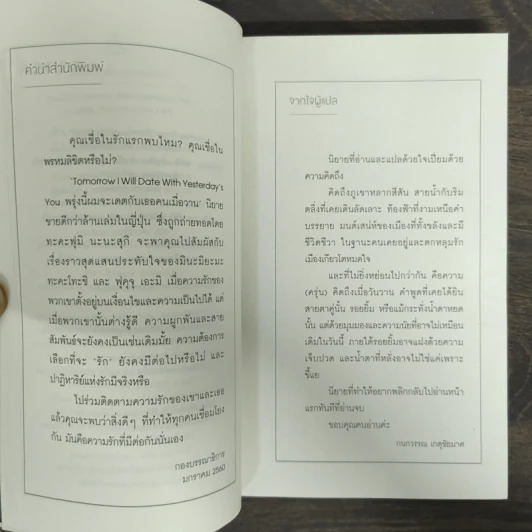 คำนำสำนักพิมพ์
คุณเชื่อในรักแรกพบไหม? คุณเชื่อใน
พรหมลิขิตหรือไม่?
"Tomorrow I Will Date With Yesterday's
You พรุ่งนี้ผมจะเดตกับเธอคนเมื่อวาน" นิยาย
ขายดีกว่าล้านเล่มในญี่ปุ่น ซึ่งถูกถ่ายทอดโดย
ทะคะฟุมิ นะนะสุกิ จะพาคุณไปสัมผัสกับ
เรื่องราวสุดแสนประทับใจของมินะมิยะมะ
ทะคะโทะชิ และ ฟุคุจุ เอะมิ เมื่อความรักของ
พวกเขาตั้งอยู่บนเงื่อนไขและความเป็นไปได้ แต่
เมื่อพวกเขานั้นต่างรู้ดี ความผูกพันและสาย
สัมพันธ์จะยังคงเป็นเช่นเดิมมั้ย ความต้องการ
เลือกที่จะ "รัก" ยังคงมีต่อไปหรือไม่ และ
ปาฏิหาริย์แห่งรักมีจริงหรือ
ไปร่วมติดตามความรักของเขาและเธอ
แล้วคุณจะพบว่าสิ่งดีๆ ที่ทำให้ทุกคนเชื่อมโยง
กัน มันคือความรักที่มีต่อกันนั่นเอง
กองบรรณาธิการ
มกราคม 2560
จากใจผู้แปล
นิยายที่อ่านและแปลด้วยใจเปี่ยมด้วย
ความคิดถึง
คิดถึงภูเขาหลากสีสัน สายน้ำกับริม
ตลิ่งที่เคยเดินลัดเลาะ ท้องฟ้าที่งามเหนือคำ
บรรยาย มนต์เสน่ห์ของเมืองที่ทั้งขลังและมี
ชีวิตชีวา ในฐานะคนเคยอยู่และตกหลุมรัก
เมืองเกียวโตหมดใจ
และที่ไม่ยิ่งหย่อนไปกว่ากัน คือความ
(ครุ่น) คิดถึงเมื่อวันวาน คำพูดที่เคยได้ยิน
สายตาคู่นั้น รอยยิ้ม หรือแม้กระทั่งน้ำตาหยด
นั้น แต่ด้วยมุมมองและความนัยที่อาจไม่เหมือน
เดิมในวันนี้ ภายใต้รอยยิ้มอาจแฝงด้วยความ
เจ็บปวด และน้ำตาที่หลั่งอาจไม่ใช่แค่เพราะ
ขี้แย
นิยายที่ทำให้อยากพลิกกลับไปอ่านหน้า
แรกทันทีที่อ่านจบ
ขอบคุณคนอ่านค่ะ
กนกวรรณ เกตุชัยมาศ